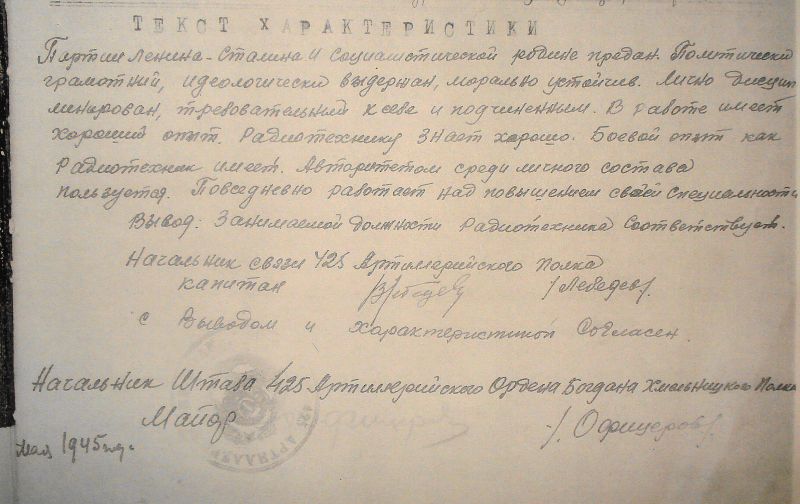 ТЕКСТ ХАРАКТЕРИСТИКИ
Партии Ленина-Сталина и социалистической родине предан. Политически
грамотный, идеологически выдержан, морально устойчив. Лично дисцип
линирован, требовательный к себе и подчиненным. В работе имеет
хороший опыт. Радиотехнику знает хорошо. Боевой опыт как
радиотехник имеет. Авторитетом среди личного состава
пользуется. Повседневно работает над повышением своей специальности
Вывод: Занимаемой должности радиотехника соответствует.
Начальник связи 425 Артиллерийского Полка
капитан /Лебедев/.
с выводом и характеристикой согласен.
Начальник Штаба 425 Артиллерийского Ордена Богдана Хмельницкого Полка
Майор /. Офицеров/.
мая 1945 г.